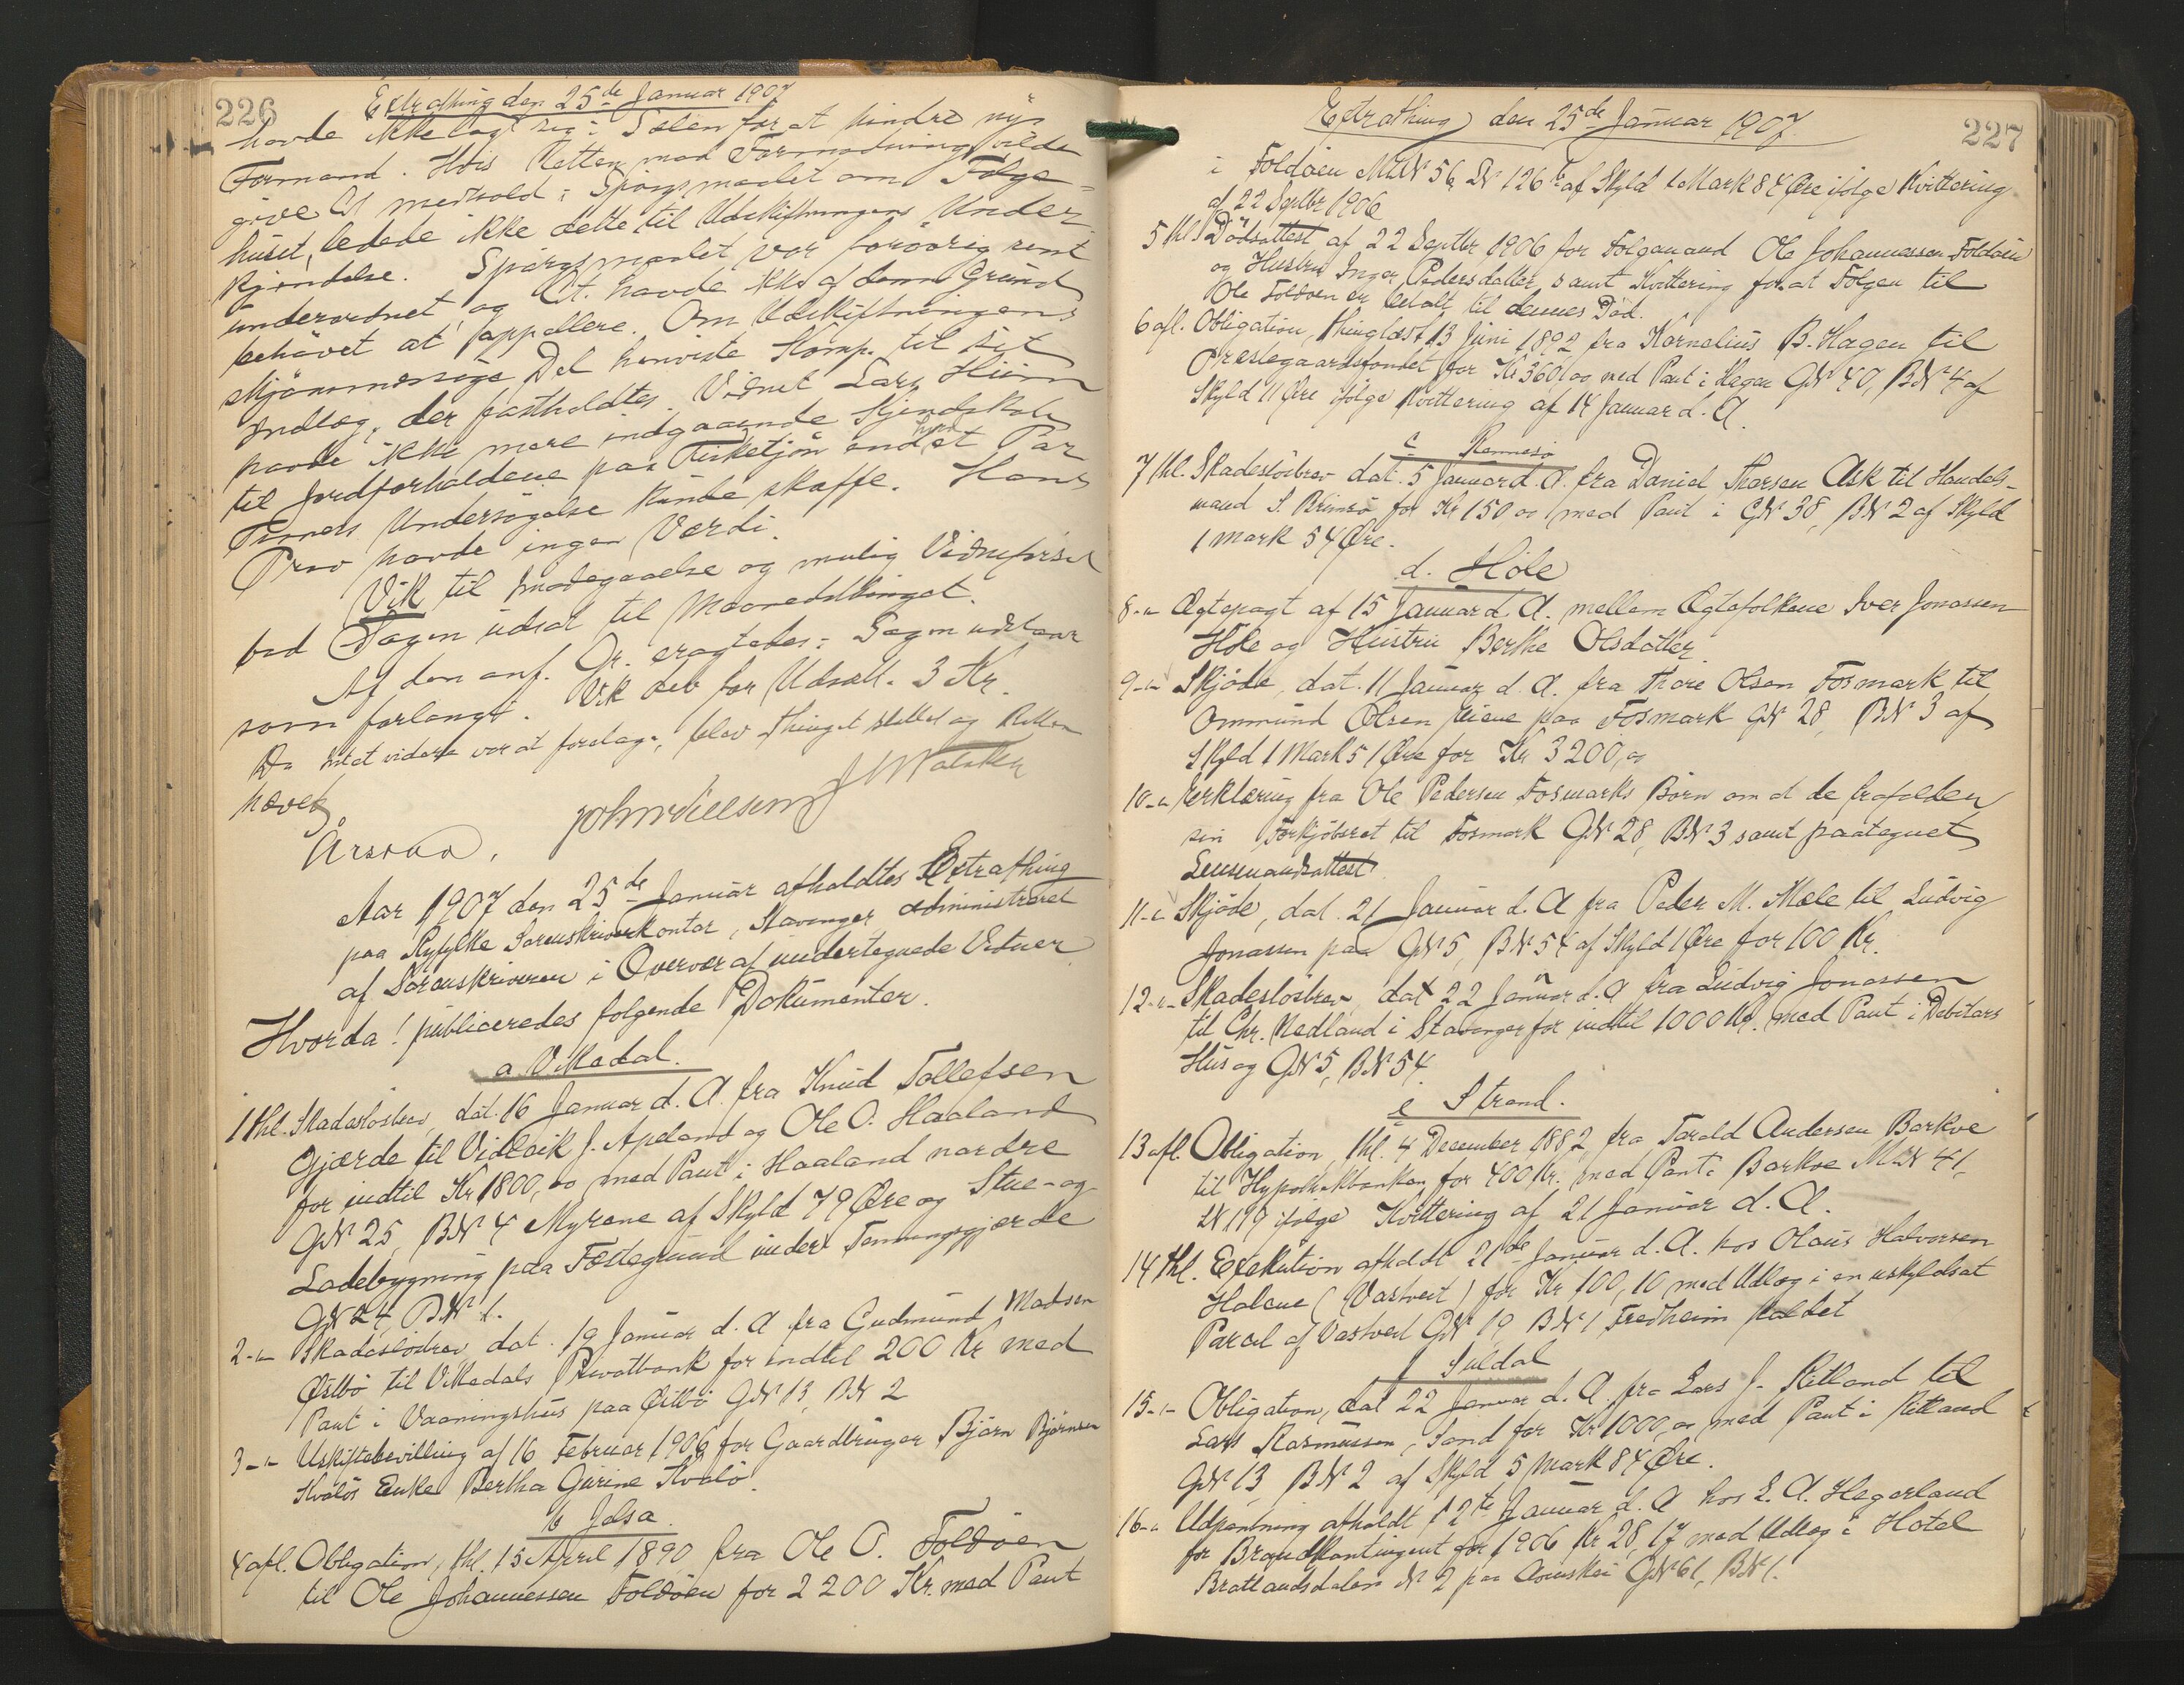 226
Extrathing den 25de Januar 1907
havde ikke lagt sig i Sælen for at hindre nys
Formand. Hvis Retten mod Formodning vilde
give Ct medhold i Spørgsmaalet om Følge-
huset, ledede ikke dette til Udskiftningens Under
kjendelse. Spørgsmaalet var forøvrig rent
underordnet og Ct. havde ikke af den Grund
behøvet at appellere. Om Udskiftningens
skjønsmæssige Del henviste Komp. til sit
Indlæg, der fastholdtes. Vidnet Lars Hiim
havde ikke mere indgaaende Kjendskab
til Jordforholdene paa end et Par
Timers Undersøgelse kunde skaffe. Hans
Prov havde ingen Værdi.
Vik til Imødegaaelse og mulig Vidneførsel
bad Sagen udsat til Maanedsthinget.
Af den anf. Gr. eragtedes: Sagen udsættes
som forlangt. Vik bet for Udsætt. 3 Kr.
Da Intet videre var at foretage, blev Thinget sluttet og Retten
hævet
Årsvoll, John Nielsen
Aar 1907 den 25de Januar afholdtes Extrathing
paa Ryfylke Sorenskriverkontor, Stavanger administreret
af Sorenskriveren i Overvær af undertegnede Vidner.
Hvorda! publiceredes følgende Dokumenter.
a Vikedal.
1 thl. Skadesløsbrev, dat. 16 Januar d. A. fra Knud Tollefsen
Gjærde til Vidleik J. Apeland og Ole O. Haaland
for indtil Kr 1800,00 med Pant i Haaland nordre
GN 25, BN 4 Myrene af Skyld 79 Øre og Stue- og
Ladebygning paa Fæstegrund under Tenningsgjærde
GN 24, BN 1.
2-"- Skadesløsbrev dat. 19 Januar d. A fra Gudmund Madsen
Ølbø til Vikedals Privatbank for indtil 200 Kr med
Pant i Vaaningshus paa Ølbø GN 13, BN 2
3-"- Uskiftebevilling af 16 Februar 1906 for Gaardbruger Bjørn Bjørnsen
Kvaløs Enke Bertha Gurine Kvalø.
b Jelsa.
4 afl. Obligation, thl. 15 April 1890 fra Ole O. Foldøen
til Ole Johannessen Foldøen for 2200 Kr. med Pant
227
Extrathing den 25de Januar 1907.
i Foldøen MN 56, LN 126 af Skyld 1 Mark 84 Øre ifølge Kvittering
af 22 Septbr 1906
5 thl. Dødsattest af 22 Septbr 1906 for Følgemand Ole Johannessen Foldøen
og Hustru Inger Pedersdatter, samt Kvittering for at Følgen til
Ole Foldøen er betalt til dennes Død.
6 afl. Obligation, thinglæst 13 Juni 1892 fra Kornelius B. Hagen til
Præstegaardsfondet for Kr 360,00 med Pant i Hagen GN 40, BN 4 af
Skyld 11 Øre ifølge Kvittering af 14 Januar d. A.
c Rennesø
7 thl. Skadesløsbrev dat. 5 Januar d. A. fra Daniel Thorsen Ask til Handels-
mand S. Brimsø for Kr 150 00 med Pant i GN 38, BN 2 af Skyld
1 mark 54 Øre.
d. Høle
8-"- Ægtepagt af 15 Januar d. A. mellem Ægtefolkene Iver Jonassen
Høle og Hustru Berthe Olsdatter
9-"- Skjøde, dat. 11 Januar d. A. fra Thore Olsen Fosmark til
Ommund Olsen paa Fosmark GN 28, BN 3 af
Skyld 1 Mark 51 Øre for Kr 3200,00
10-"- Erklæring fra Ole Pedersen Fosmarks Børn om at de frafalder
sin Forkjøbsret til Fosmark GN 28, BN 3 samt paategnet
Lensmandsattest
11-"- Skjøde, dat. 21 Januar d. A fra Peder M. Mæle til Ludvig
Jonassen paa GN 5, BN 54 af Skyld 1 Øre for 100 Kr.
12-"- Skadesløsbrev, dat 22 Januar d. A fra Ludvig Jonassen
til Chr. Nedland i Stavanger for indtil 1000 Kr. med Pant i Debitors
Hus og GN 5, BN 54.
e Strand.
13 afl. Obligation, thl. 4 December 1882 fra Tarald Andersen Barkve
til Hypothekbanken for 400 Kr. med Pant i Barkve MN 41,
LN 119 ifølge Kvittering af 21 Januar d. A.
14 thl. Exekution afholdt 21de Januar d. A. hos Olaus Halvorsen
Holane (Vastveit) for Kr 100,10 med Udlæg i en uskyldsat
Parcel af Vastveit GN 19, BN 1 Fredheim kaldet
f Suldal
15-"- Obligation, dat 22 Januar d. A. fra Lars J. Ritland til
Lars Rasmussen, Sand for Kr 1000,00 med Pant i Ritland
GN 13, BN 2 af Skyld 5 Mark 84 Øre.
16-"- Udpantning afholdt 12te Januar d. A hos L. A. Hegerland
for Brandkontingent for 1906 Kr 28,17 med Udlæg i Hotel
Bratlandsdalen N 2 paa GN 61, BN 1.